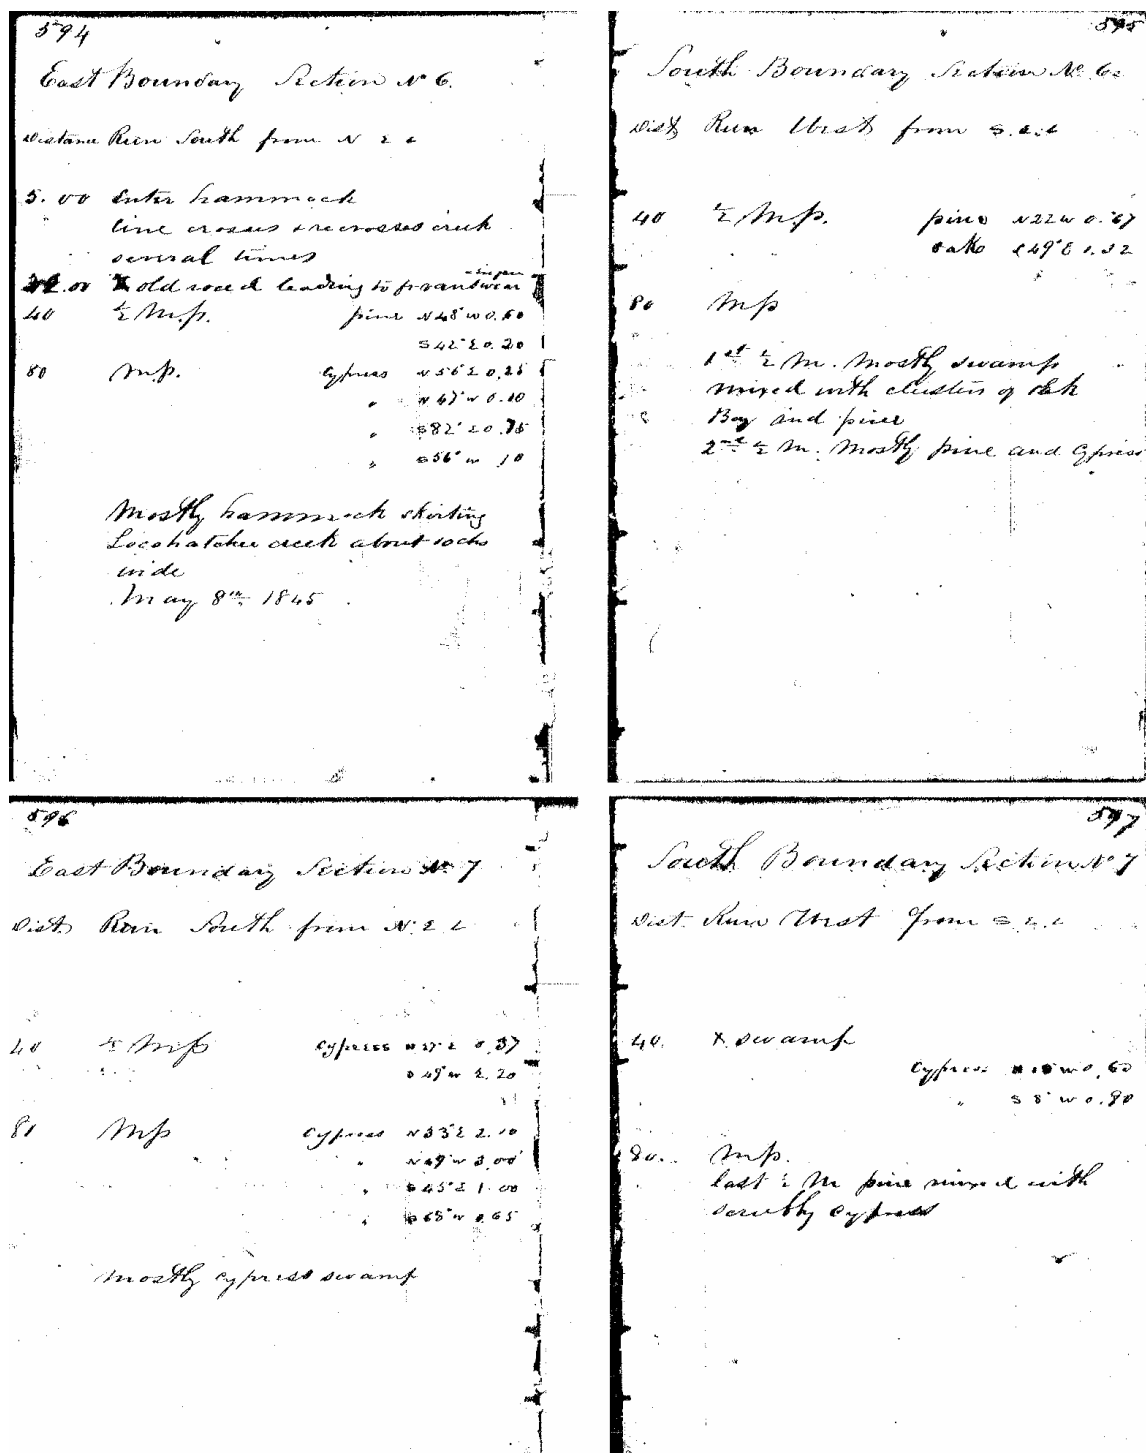 594
East Boundary Section No 6.
Distance Run South from N E C
5.00 Enter hammock
line crosses & recrosses creek
several times
.00 X old road leading to
40 ½ M.P. pine N48°W 0.60
S42°E 0.20
80 M.P. Cypress N56°E 0.25
" N47°W 0.10
" S82°E 0.75
" S56°W 10
Mostly hammock skirting
Locohatchee creek about 10 chs
wide
May 8th 1845
595
South Boundary Section No 6
Dist Run West from S.E.C
40 ½ M.P. pine N22W 0.67
oak 49°E 1.32
80 M.P
1st ½ M. Mostly swamp
mixed with clusters of oak
Bay and pine
2nd ½ M. Mostly pine and Cypress
596
East Boundary Section No 7
Dist. Run South from N.E C
40 ½ M.P Cypress E 0.37
49°W 2.20
80 M.P Cypress N33°E 2.10
" N49°W 3.00
" S45°E 1.00
" S68°W 0.65
Mostly cypress swamp
597
South Boundary Section No 7
Dist. Run West from S.E.C
40. X swamp
Cypress W 0.60
" S8°W 0.80
80. M.P.
last ½ M pine mixed with
scrubby cypress